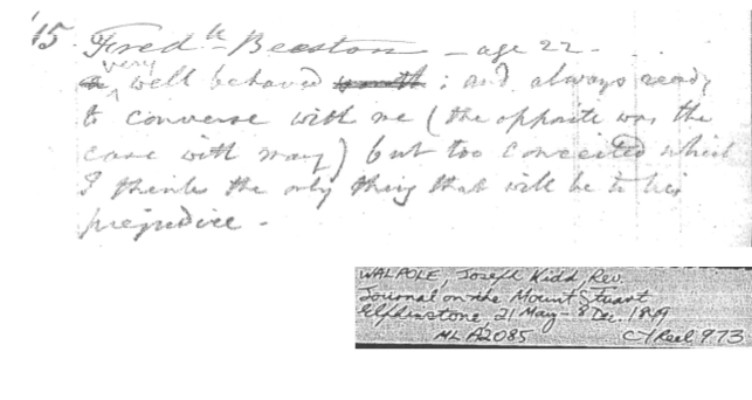 '15. Fred^k Beeston – age 22 –
a very well behaved youth ; and always ready
to converse with me (the opposite was the
case with many) but too conceited which
I think the only thing that will be to his
prejudice –
WALPOLE, Joseph Kidd, Rev.
Journal on the Mount Stuart
Elphinstone, 21 May – 8 Dec. 1849
ML A2085 CY Reel 973